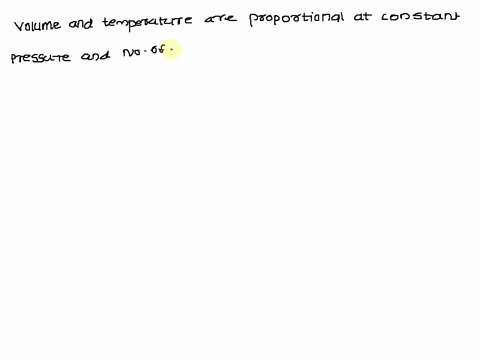 Volume and temperature are proportional at constant
pressure and no. of